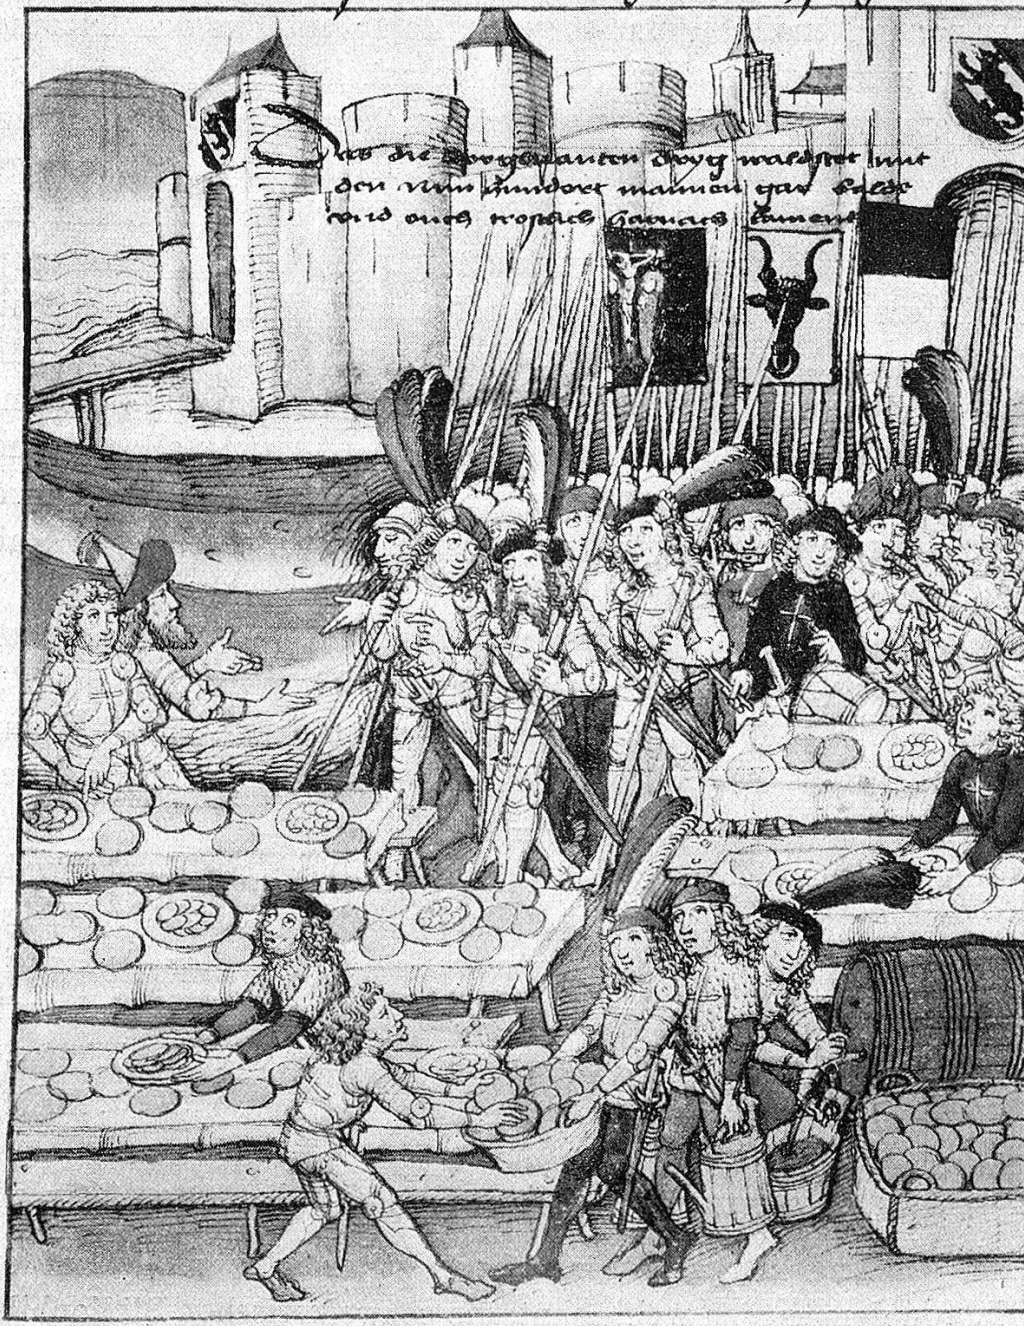 Als die vorgenanten dryg waldstet mit
den nun hundert mannen gar balde
und ouch trostlich harnach kament